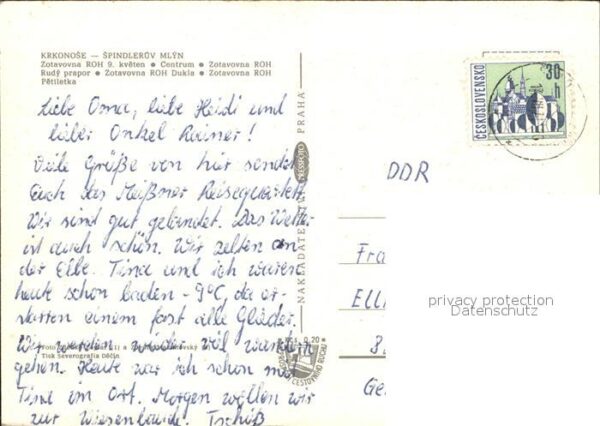 KRKONOŠE — ŠPINDLERŮV MLÝN
Zotavovna ROH 9. květen ● Centrum ● Zotavovna ROH
Rudý prapor ● Zotavovna ROH Dukla ● Zotavovna ROH
Pětiletka
Liebe Oma, liebe Heidi und
lieber Onkel Rainer!
Viele Grüße von hier sendet
Euch das Meißner Reisequartett.
Wir sind gut gelandet. Das Wetter
ist auch schön. Wir zelten an
der Elbe. Tina und ich waren
heute schon baden - 9°C, da er-
starren einem fast alle Glieder.
Wir werden wieder viel wandern
gehen. Heute war ich schon mit
Tine im Ort. Morgen wollen wir
zur Wiesenbaude. Tschüß
Tisk Severografia Děčín
NAKLADATELSTVÍ PRESSFOTO PRAHA
ČESKOSLOVENSKO
30
h
DDR
Fra
Elli
Ge
privacy protection
Datenschutz